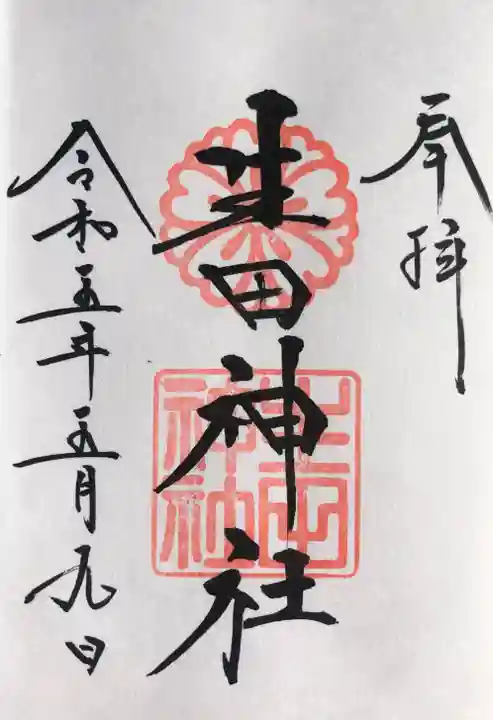 奉拝
生田神社
生田神社
令和五年五月九日